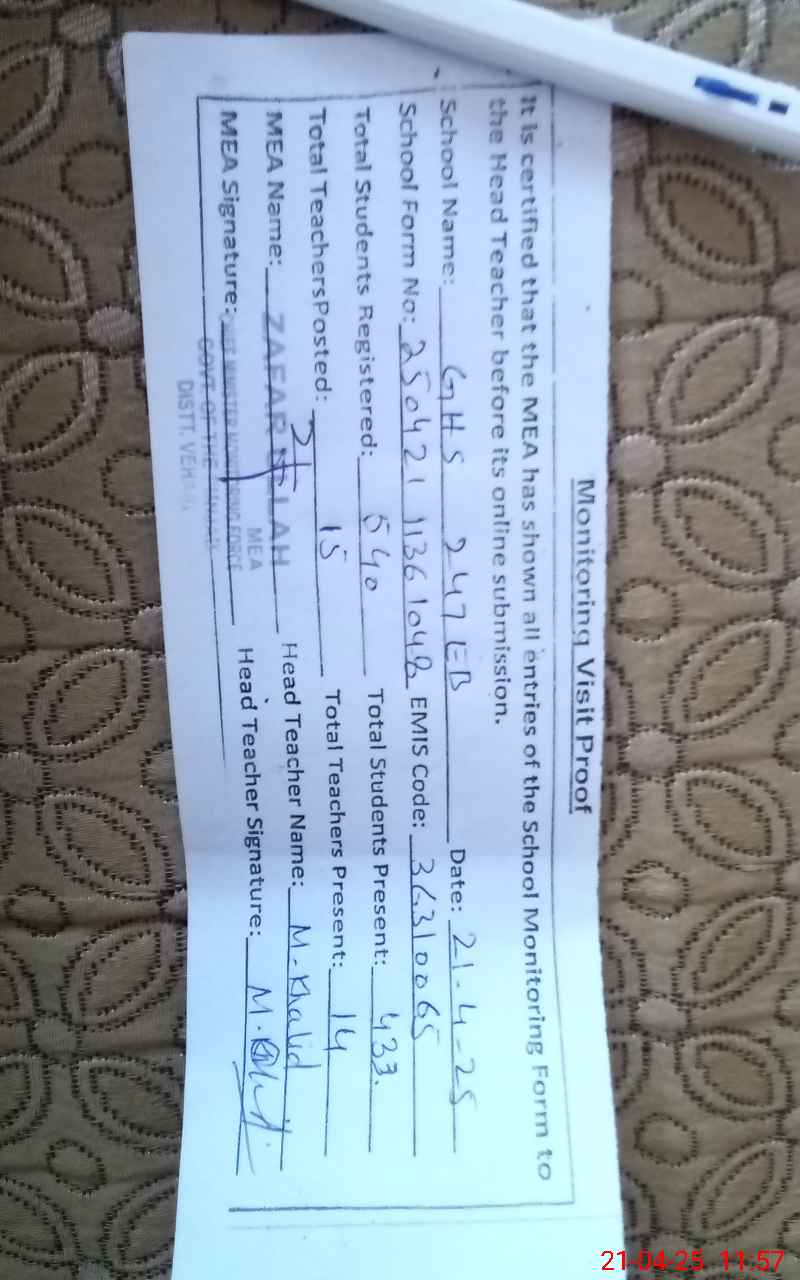 Monitoring Visit Proof
It is certified that the MEA has shown all entries of the School Monitoring Form to
the Head Teacher before its online submission.
School Name: GHS 247 EB Date: 21-4-25
School Form No: 250421 11361048 EMIS Code: 36310065
Total Students Registered: 540 Total Students Present: 433.
Total TeachersPosted: 15 Total Teachers Present: 14
MEA Name: ZAFAR Head Teacher Name: M-Khalid
MEA Signature: Head Teacher Signature: M.
MEA
CHIEF MINISTER MONITORING FORCE
GOVT. OF THE
DISTT.
21-04-25 11:57